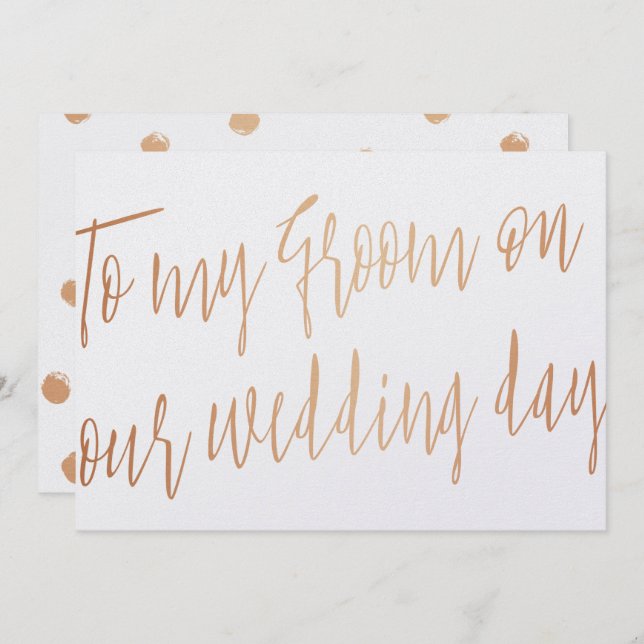 To my Groom on
our wedding day